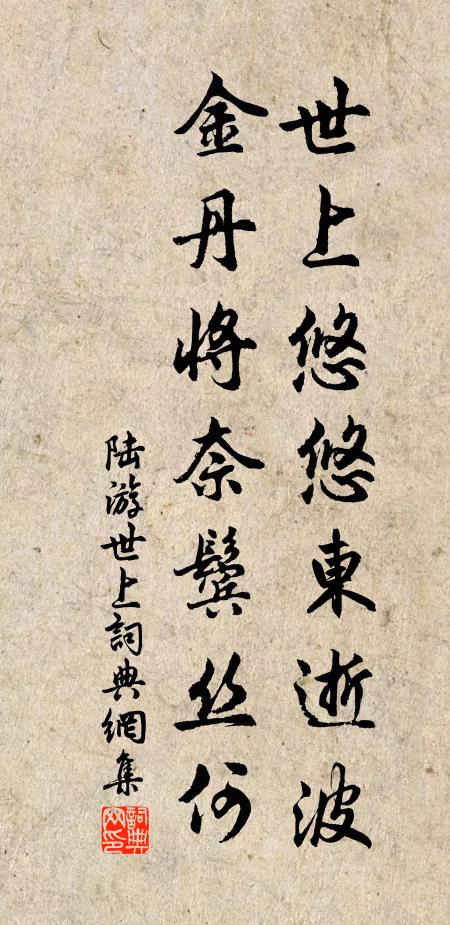 世上悠悠東逝波
金丹將奈鬢丝何
陆游世上詞典網集
詞典网印